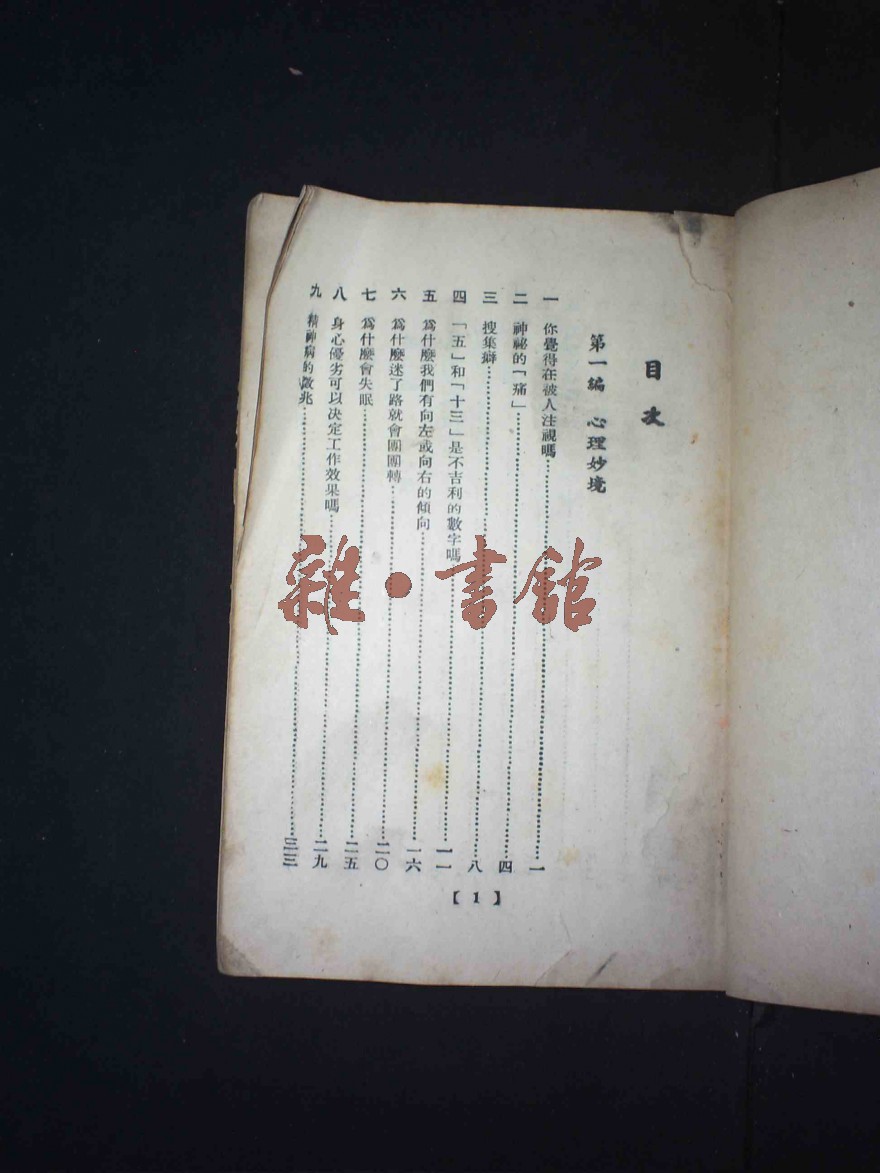 目次
第一編 心理妙境
一 你覺得在被人注視嗎……一
二 神祕的「痛」……四
三 搜集癖……八
四 「五」和「十三」是不吉利的數字嗎……一一
五 爲什麼我們有向左或向右的傾向……一六
六 爲什麼迷了路就會團團轉……二〇
七 爲什麼會失眠……二五
八 身心優劣可以决定工作效果嗎……二九
九 精神病的徵兆……三三
【1】
雜·書館